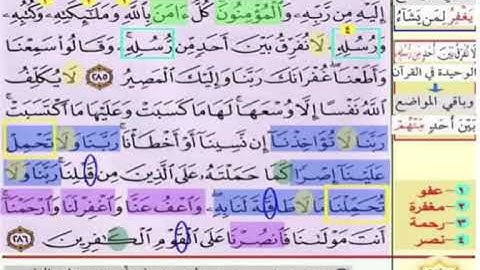 إِلَيْهِ مِن رَّبِّهِۦ وَٱلْمُؤْمِنُونَ كُلٌّ ءَامَنَ بِٱللَّهِ وَمَلَـٰٓئِكَتِهِۦ وَكُتُبِهِۦ
وَرُسُلِهِۦ لَا نُفَرِّقُ بَيْنَ أَحَدٍ مِّن رُّسُلِهِۦ ۚ وَقَالُوا۟ سَمِعْنَا
وَأَطَعْنَا ۖ غُفْرَانَكَ رَبَّنَا وَإِلَيْكَ ٱلْمَصِيرُ ٢٨٥ لَا يُكَلِّفُ
ٱللَّهُ نَفْسًا إِلَّا وُسْعَهَا ۚ لَهَا مَا كَسَبَتْ وَعَلَيْهَا مَا ٱكْتَسَبَتْ ۗ
رَبَّنَا لَا تُؤَاخِذْنَآ إِن نَّسِينَآ أَوْ أَخْطَأْنَا ۚ رَبَّنَا وَلَا تَحْمِلْ
عَلَيْنَآ إِصْرًا كَمَا حَمَلْتَهُۥ عَلَى ٱلَّذِينَ مِن قَبْلِنَا ۚ رَبَّنَا وَلَا
تُحَمِّلْنَا مَا لَا طَاقَةَ لَنَا بِهِۦ ۖ وَٱعْفُ عَنَّا وَٱغْفِرْ لَنَا وَٱرْحَمْنَآ ۚ
أَنتَ مَوْلَىٰنَا فَٱنصُرْنَا عَلَى ٱلْقَوْمِ ٱلْكَـٰفِرِينَ ٢٨٦
يَغْفِرُ لِمَن يَشَآءُ
لَا نُفَرِّقُ بَيْنَ أَحَدٍ مِّن رُّسُلِهِ
الوحيدة في القرآن
وباقي المواضع
بَيْنَ أَحَدٍ مِّنْهُمْ
١- عفو
٢- مغفرة
٣- رحمة
٤- نصر